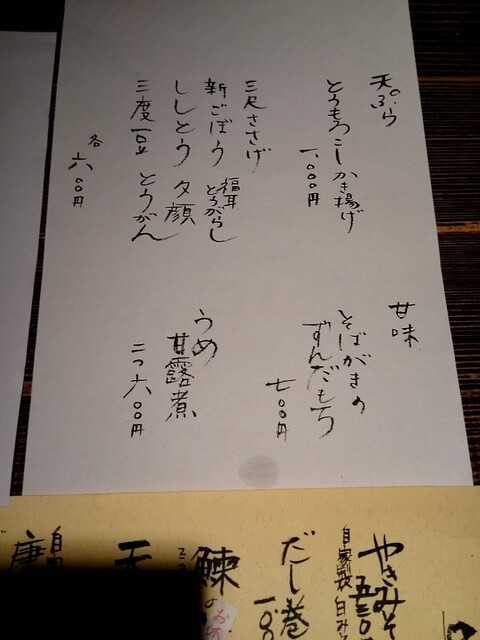 天ぷら
とうもろこしかき揚げ
一、〇〇〇円
三尺ささげ
新ごぼう 福耳とうがらし
ししとう 夕顔
三度豆 とうがん
各 六〇〇円
甘味
そばがきの
ずんだもち
七〇〇円
うめ
甘露煮
二つ六〇〇円
やきみそ
自家製白み
だし巻